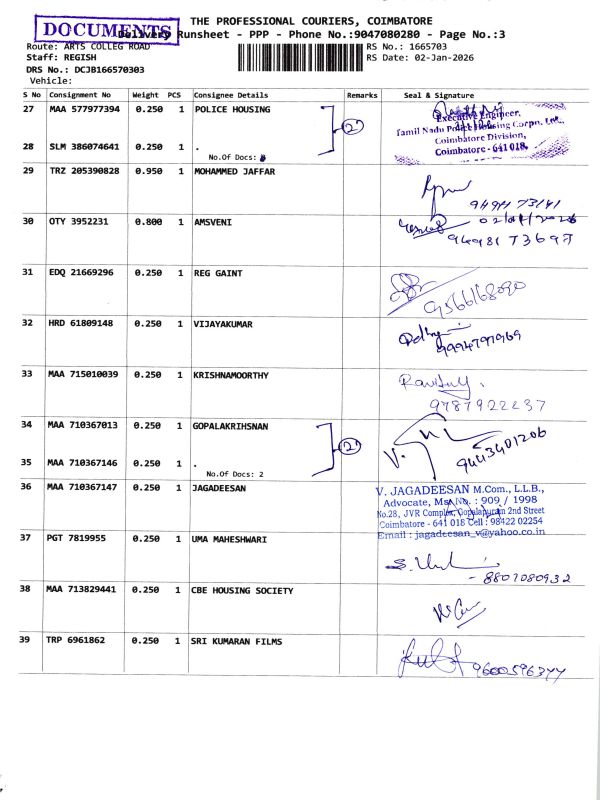 THE PROFESSIONAL COURIERS, COIMBATORE
DOCUMENTS
Delivery Runsheet - PPP - Phone No.:9047080280 - Page No.:3
Route: ARTS COLLEG ROAD
RS No.: 1665703
Staff: REGISH
RS Date: 02-Jan-2026
DRS No.: DCJB166570303
Vehicle:
S No Consignment No Weight PCS Consignee Details Remarks Seal & Signature
27 MAA 577977394 0.250 1 POLICE HOUSING
Executive Engineer,
Tamil Nadu Police Housing Corpn. Ltd.,
Coimbatore Division,
Coimbatore - 641 018.
28 SLM 386074641 0.250 1 .
No.Of Docs:
29 TRZ 205390828 0.950 1 MOHAMMED JAFFAR
30 OTY 3952231 0.800 1 AMSVENI
31 EDQ 21669296 0.250 1 REG GAINT
32 HRD 61809148 0.250 1 VIJAYAKUMAR
33 MAA 715010039 0.250 1 KRISHNAMOORTHY
9787922237
34 MAA 710367013 0.250 1 GOPALAKRIHSNAN
9443401206
35 MAA 710367146 0.250 1 .
No.Of Docs: 2
36 MAA 710367147 0.250 1 JAGADEESAN
V. JAGADEESAN M.Com., L.L.B.,
Advocate, Ms. No. : 909 / 1998
No.28, JVR Complex, Gopalapuram 2nd Street
Coimbatore - 641 018 Cell : 98422 02254
Email : jagadeesan_v@yahoo.co.in
37 PGT 7819955 0.250 1 UMA MAHESHWARI
- 8807080932
38 MAA 713829441 0.250 1 CBE HOUSING SOCIETY
39 TRP 6961862 0.250 1 SRI KUMARAN FILMS
9600596344